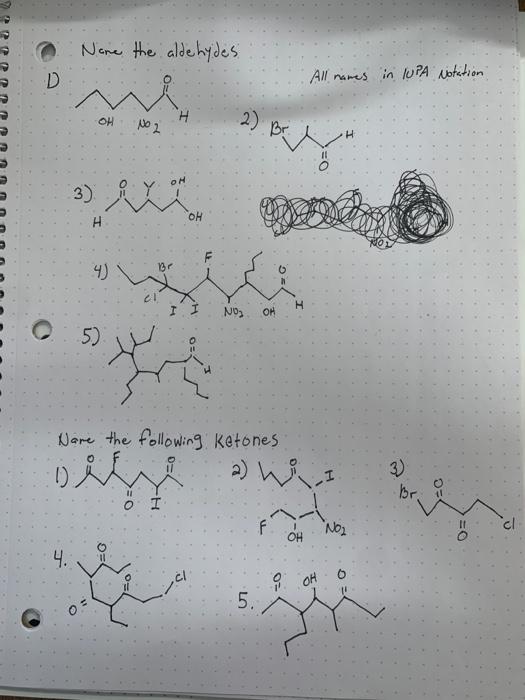 Name the aldehydes
All names in IUPA Notation
1)
O
H
OH NO2
2)
Br
H
O
3)
O
OH
H
OH
NO2
4)
Br
F
O
Cl
I I
NO2
OH
H
5)
O
H
Name the following Ketones
1)
O
F
O
O
I
2)
O
I
F
OH
NO2
3)
Br
O
O
Cl
4.
O
O
Cl
O
5.
O
OH
O